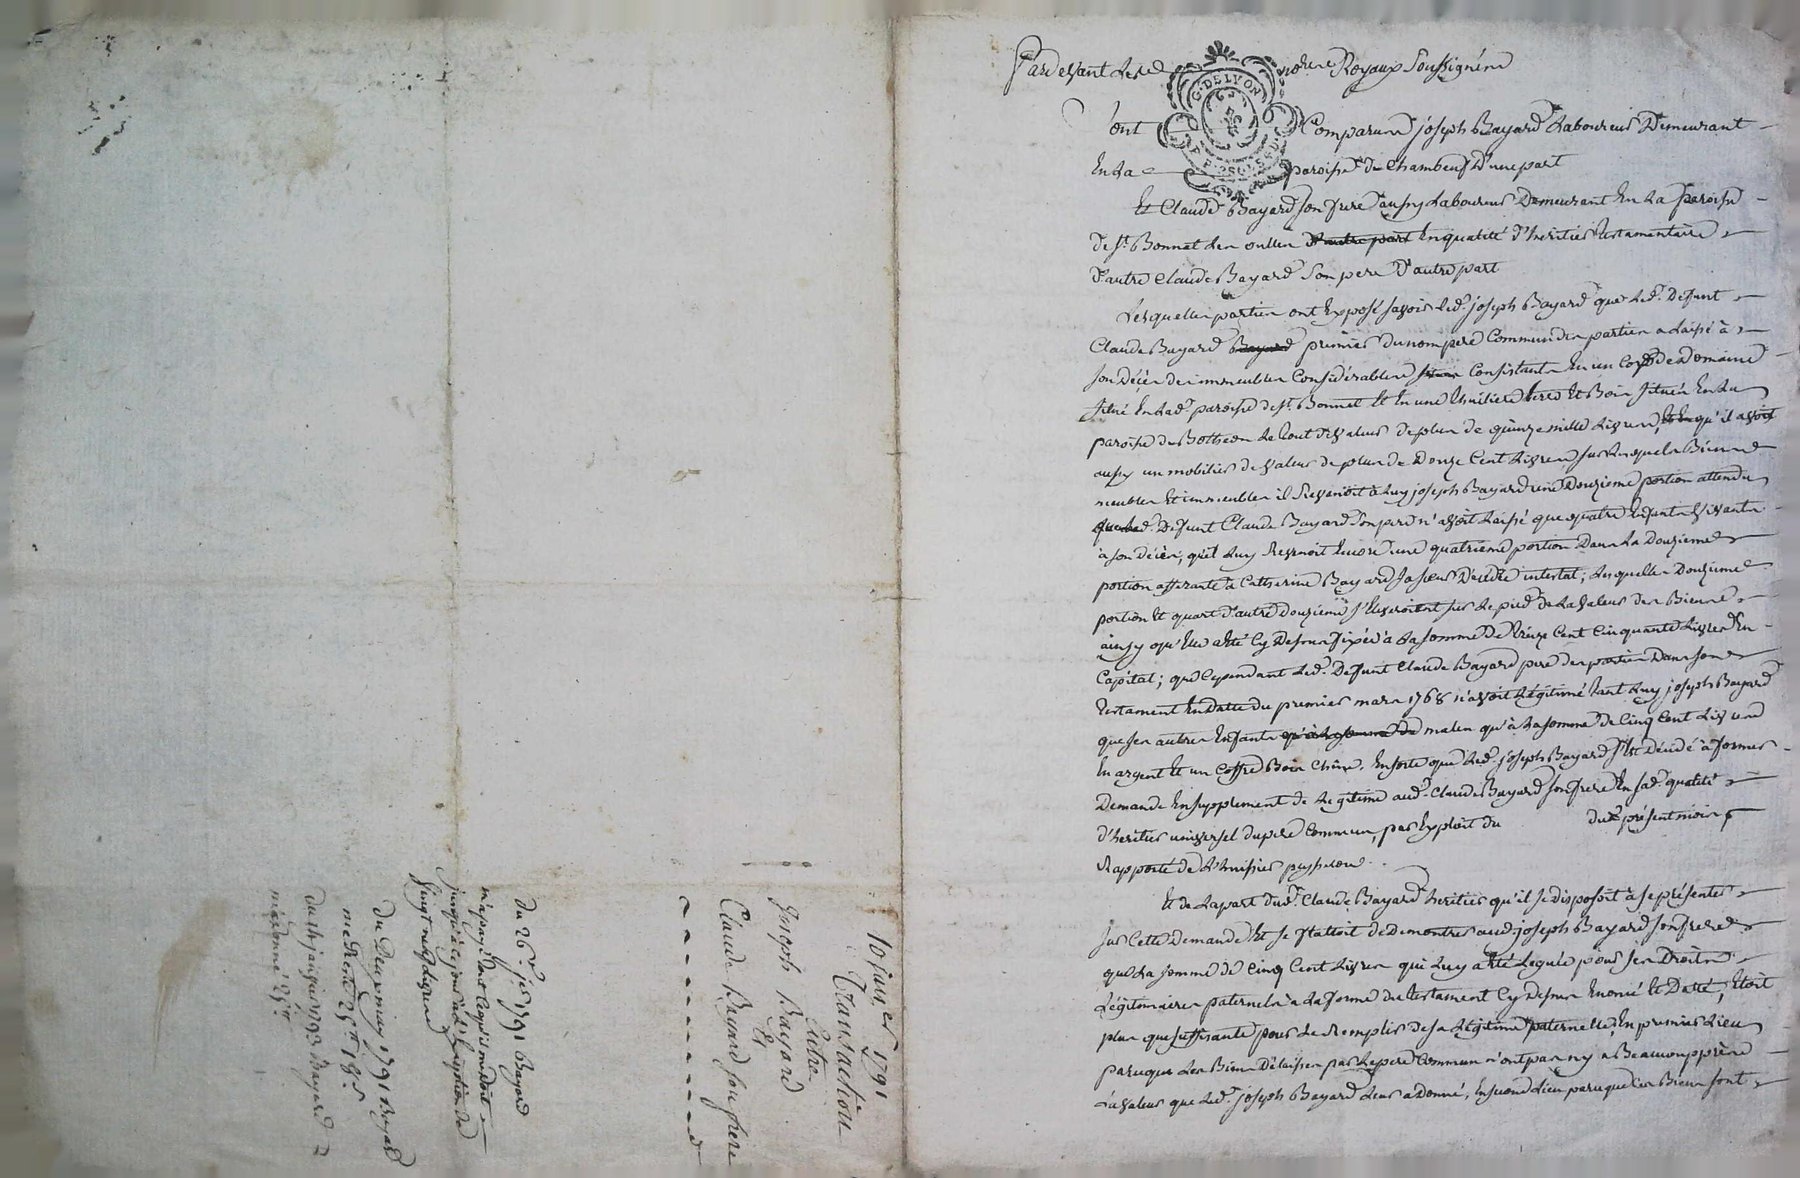 Pardevant les notres Royaux Soussignés
ont Comparus joseph Bayard Laboureur Demeurant
En la paroisse de Chambeuf D'une part
Et Claude Bayard son frere aussy Laboureur Demeurant En la paroisse
de St. Bonnet les oulles d'autre part En qualité D'heritier testamentaire
d'autre Claude Bayard son pere D'autre part
Lesquelles parties ont Exposé savoir led. joseph Bayard que led. Defunt
Claude Bayard Bayard premier du nom pere Commun des parties a laissé à
son Décès des immeubles Considérables Consistants En un Corps de Domaine
situé En lad. paroisse de St. Bonnet Et En une terre Et Bois situés En la
paroisse de Botheon le tout de valeur de plus de quinze mille Livres, qu'il avoit
aussy un mobilier de valeur de plus de Douze Cent Livres sur lesquels Biens
meubles Et immeubles il Revenoit à Luy joseph Bayard une Douzieme portion attendu
que led. Defunt Claude Bayard son pere n'avoit laissé que quatre Enfants vivants
à son décès, qu'il Luy Revenoit Encore une quatrieme portion Dans la Douzieme
portion afferante à Catherine Bayard sa sœur Décedée intestat; Lesquelles Douzieme
portion Et quart d'autre douzieme s'Elevoient sur le pied de la valeur des Biens
ainsy qu'Elle a Eté Cy Dessus fixée à la somme De treize Cent Cinquante Livres En
Capital; que Cependant led. Defunt Claude Bayard pere des parties Dans son
testament En datte du premier mars 1768 n'avoit Légitimé tant Luy joseph Bayard
que ses autres Enfants qu'à la somme de males qu'à la somme de Cinq Cent Livres
En argent Et un Coffre Bois Chêne. Ensorte que led. joseph Bayard s'Est décidé à former
Demande En supplement de Legitime aud. Claude Bayard son frere En sad. qualité
d'heritier universel du pere Commun, par Exploit du du présent mois
Rapporté de L'huissier
Et de la part dud. Claude Bayard heritier qu'il se disposoit à se présenter
sur Cette Demande Et se flattoit de Demontrer aud. joseph Bayard son frere
que la somme de Cinq Cent Livres qui Luy a Eté Leguée pour ses Droits
Légitimaires paternels à la forme du testament Cy Dessus Enoncé Et Datté, Etoit
plus que suffisante pour le Remplir de sa légitime paternelle, En premier Lieu
parceque Les Biens Délaissés par le pere Commun n'ont pas ny a Beaucoup près
La valeur que led. joseph Bayard Leur a donné, En second Lieu parceque Ces Biens sont
10 janvier 1791
Transaction
Entre
Joseph Bayard
Et
Claude Bayard son frere
du 26 1791 Bayard
m'a payé tout Ce qu'il me doit
jusqu'à Ce jour
vingt neuf Livres
du Deux may 1791 Bayard
me
du 14 janvier 1793 Bayard
m'a donné